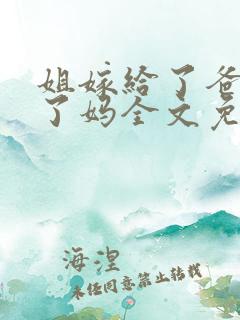 姐嫁给了爸
了妈全文免
海涅
未经同意禁止转载